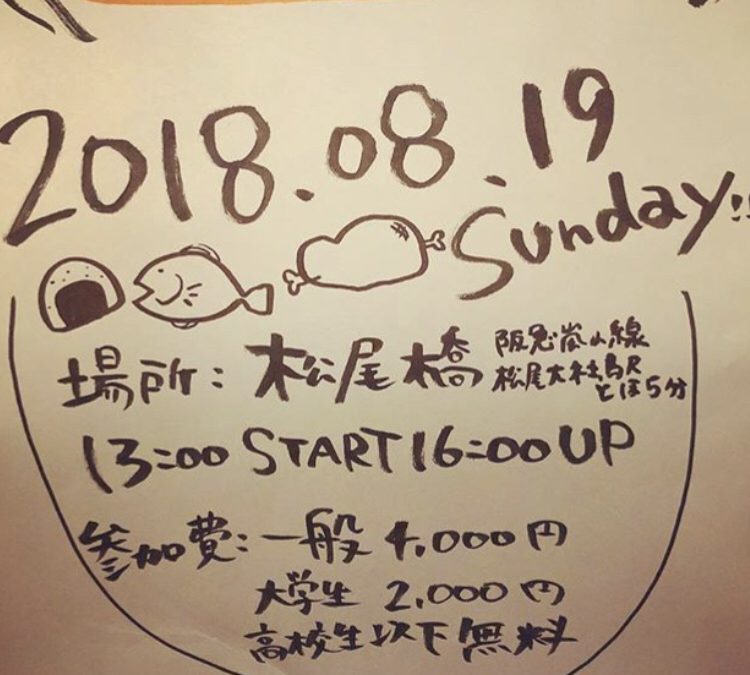 2018.08.19
Sunday!!
場所: 松尾橋
阪急嵐山線
松尾大社駅
とほ5分
13:00 START 16:00 UP
参加費: 一般 4,000円
大学生 2,000円
高校生以下無料